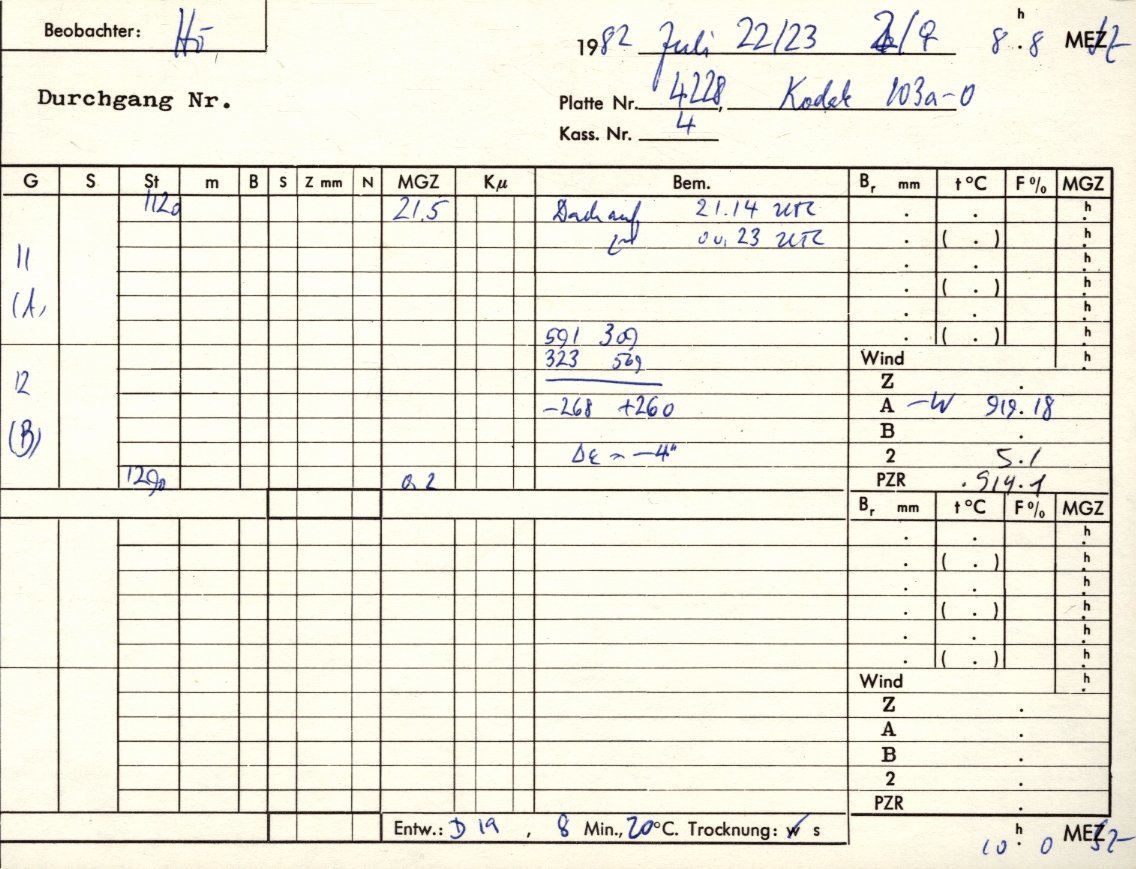 Beobachter: Hö
1982 Juli 22/23 8h.8 MEZ
Durchgang Nr.
Platte Nr. 4228, Kodak 103a-O
Kass. Nr. 4
G S St m B S Z mm N MGZ Kμ Bem. Br mm t°C F% MGZ
1120 21.5 Dach auf 21.14 UTC . . h.
zu 00.23 UTC . ( . ) h.
11 . . h.
(A) . ( . ) h.
. . h.
591 309 . ( . ) h.
323 569 Wind h.
12 Z .
-268 +260 A -W 919.18
(B) B .
Δε = -4" 2 5.1
1290 0.2 PZR .914.1
Br mm t°C F% MGZ
. . h.
. ( . ) h.
. . h.
. ( . ) h.
. . h.
. ( . ) h.
Wind h.
Z .
A .
B .
2 .
PZR .
Entw.: D 19, 8 Min., 20°C. Trocknung: w s
10h.0 MEZ